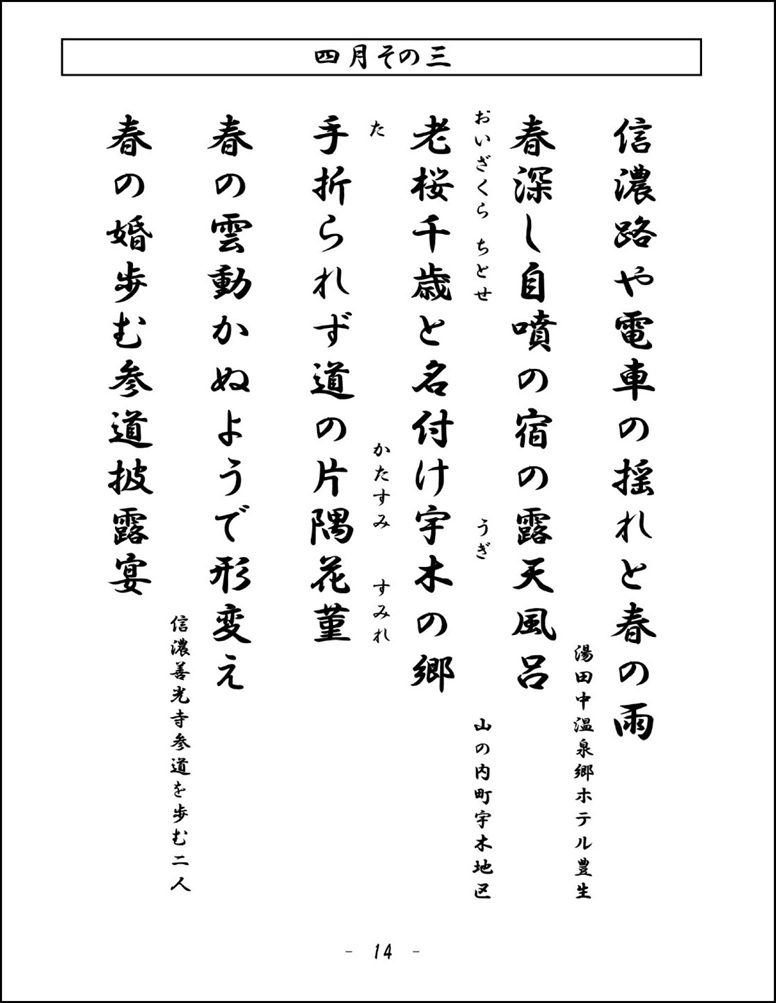 四月その三
信濃路や電車の揺れと春の雨
湯田中温泉郷ホテル豊生
春深し自噴の宿の露天風呂
おいざくら ちとせ うぎ
老桜千歳と名付け宇木の郷
山の内町宇木地区
た かたすみ すみれ
手折られず道の片隅花菫
春の雲動かぬようで形変え
信濃善光寺参道を歩む二人
春の婚歩む参道披露宴
- 14 -